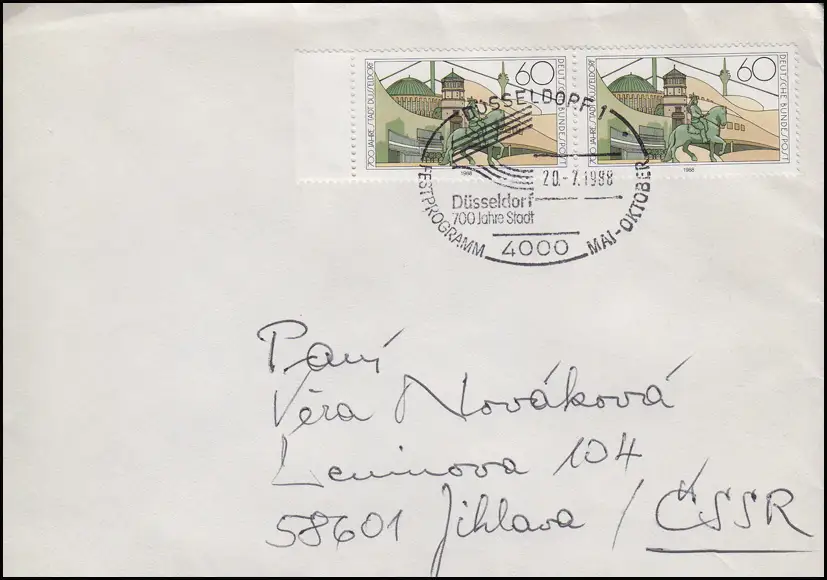 700 JAHRE STADT DÜSSELDORF
60
DEUTSCHE BUNDESPOST
1988
700 JAHRE STADT DÜSSELDORF
60
DEUTSCHE BUNDESPOST
1988
DÜSSELDORF 1
20.-7.1988
Düsseldorf
700 Jahre Stadt
FESTPROGRAMM
4000
MAI-OKTOBER
Paní
Věra Nováková
Leninova 104
58601 Jihlava / ČSSR